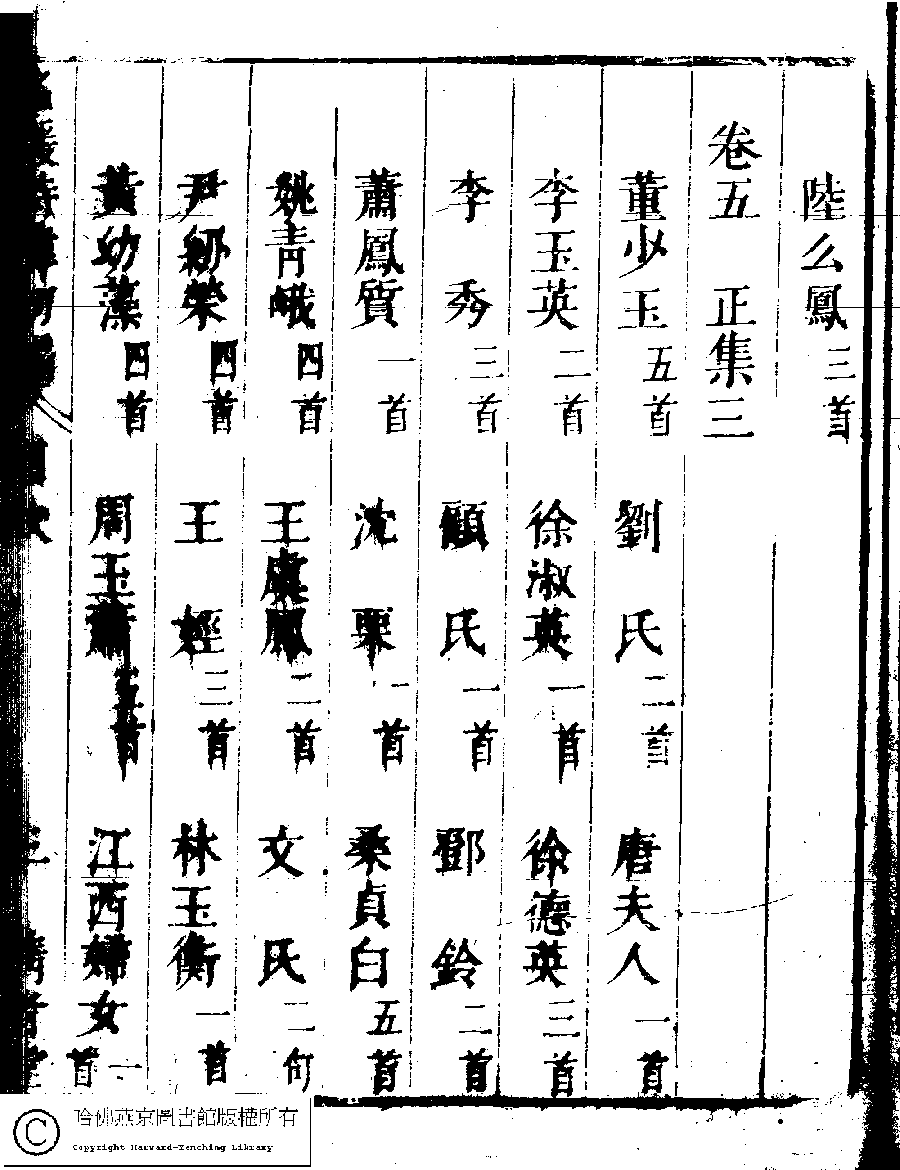 陸么鳳三首
卷五 正集三
董少玉五首 劉氏二首 唐夫人一首
李玉英二首 徐淑英一首 徐德英三首
李秀三首 顧氏一首 鄧鈴二首
蕭鳳質一首 沈栗一首 桑貞白五首
姚青峨四首 王虞鳳二首 文氏二首
尹紉榮四首 王嬌三首 林玉衡一首
黃幼藻四首 周玉簫五首 江西婦女一首
哈佛燕京圖書館版權所有
Copyright Harvard-Yenching Library